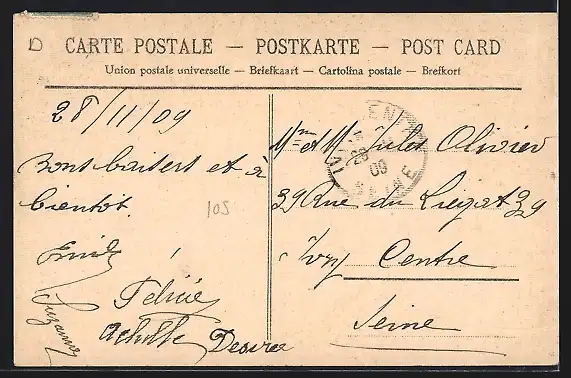 D
CARTE POSTALE — POSTKARTE — POST CARD
Union postale universelle — Briefkaart — Cartolina postale — Brefkort
28/11/09
Bons baisers et à
bientot.
105
Félicie
Achille Desiré
Suzanne
Mme et M Jules Olivier
39 Rue du Liégat 39
Ivry Centre
Seine
09
SEINE